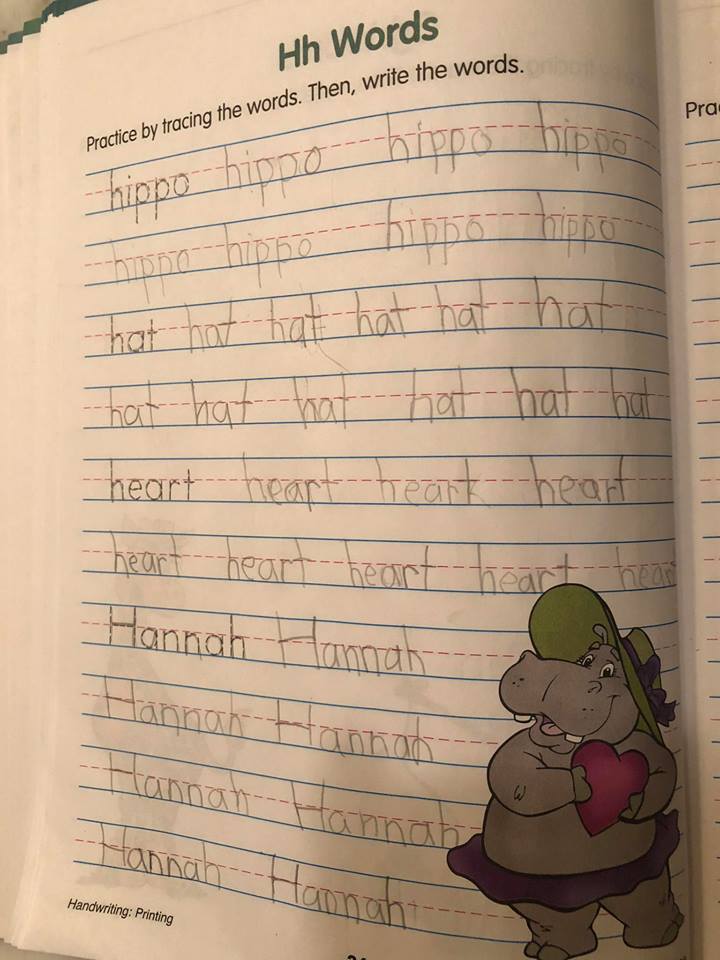 Hh Words
Practice by tracing the words. Then, write the words.
hippo hippo hippo hippo
hippo hippo hippo hippo
hat hat hat hat hat hat
hat hat hat hat hat hat
heart heart heart heart
heart heart heart heart heart
Hannah Hannah
Hannah Hannah
Hannah Hannah
Hannah Hannah
Handwriting: Printing
Pra